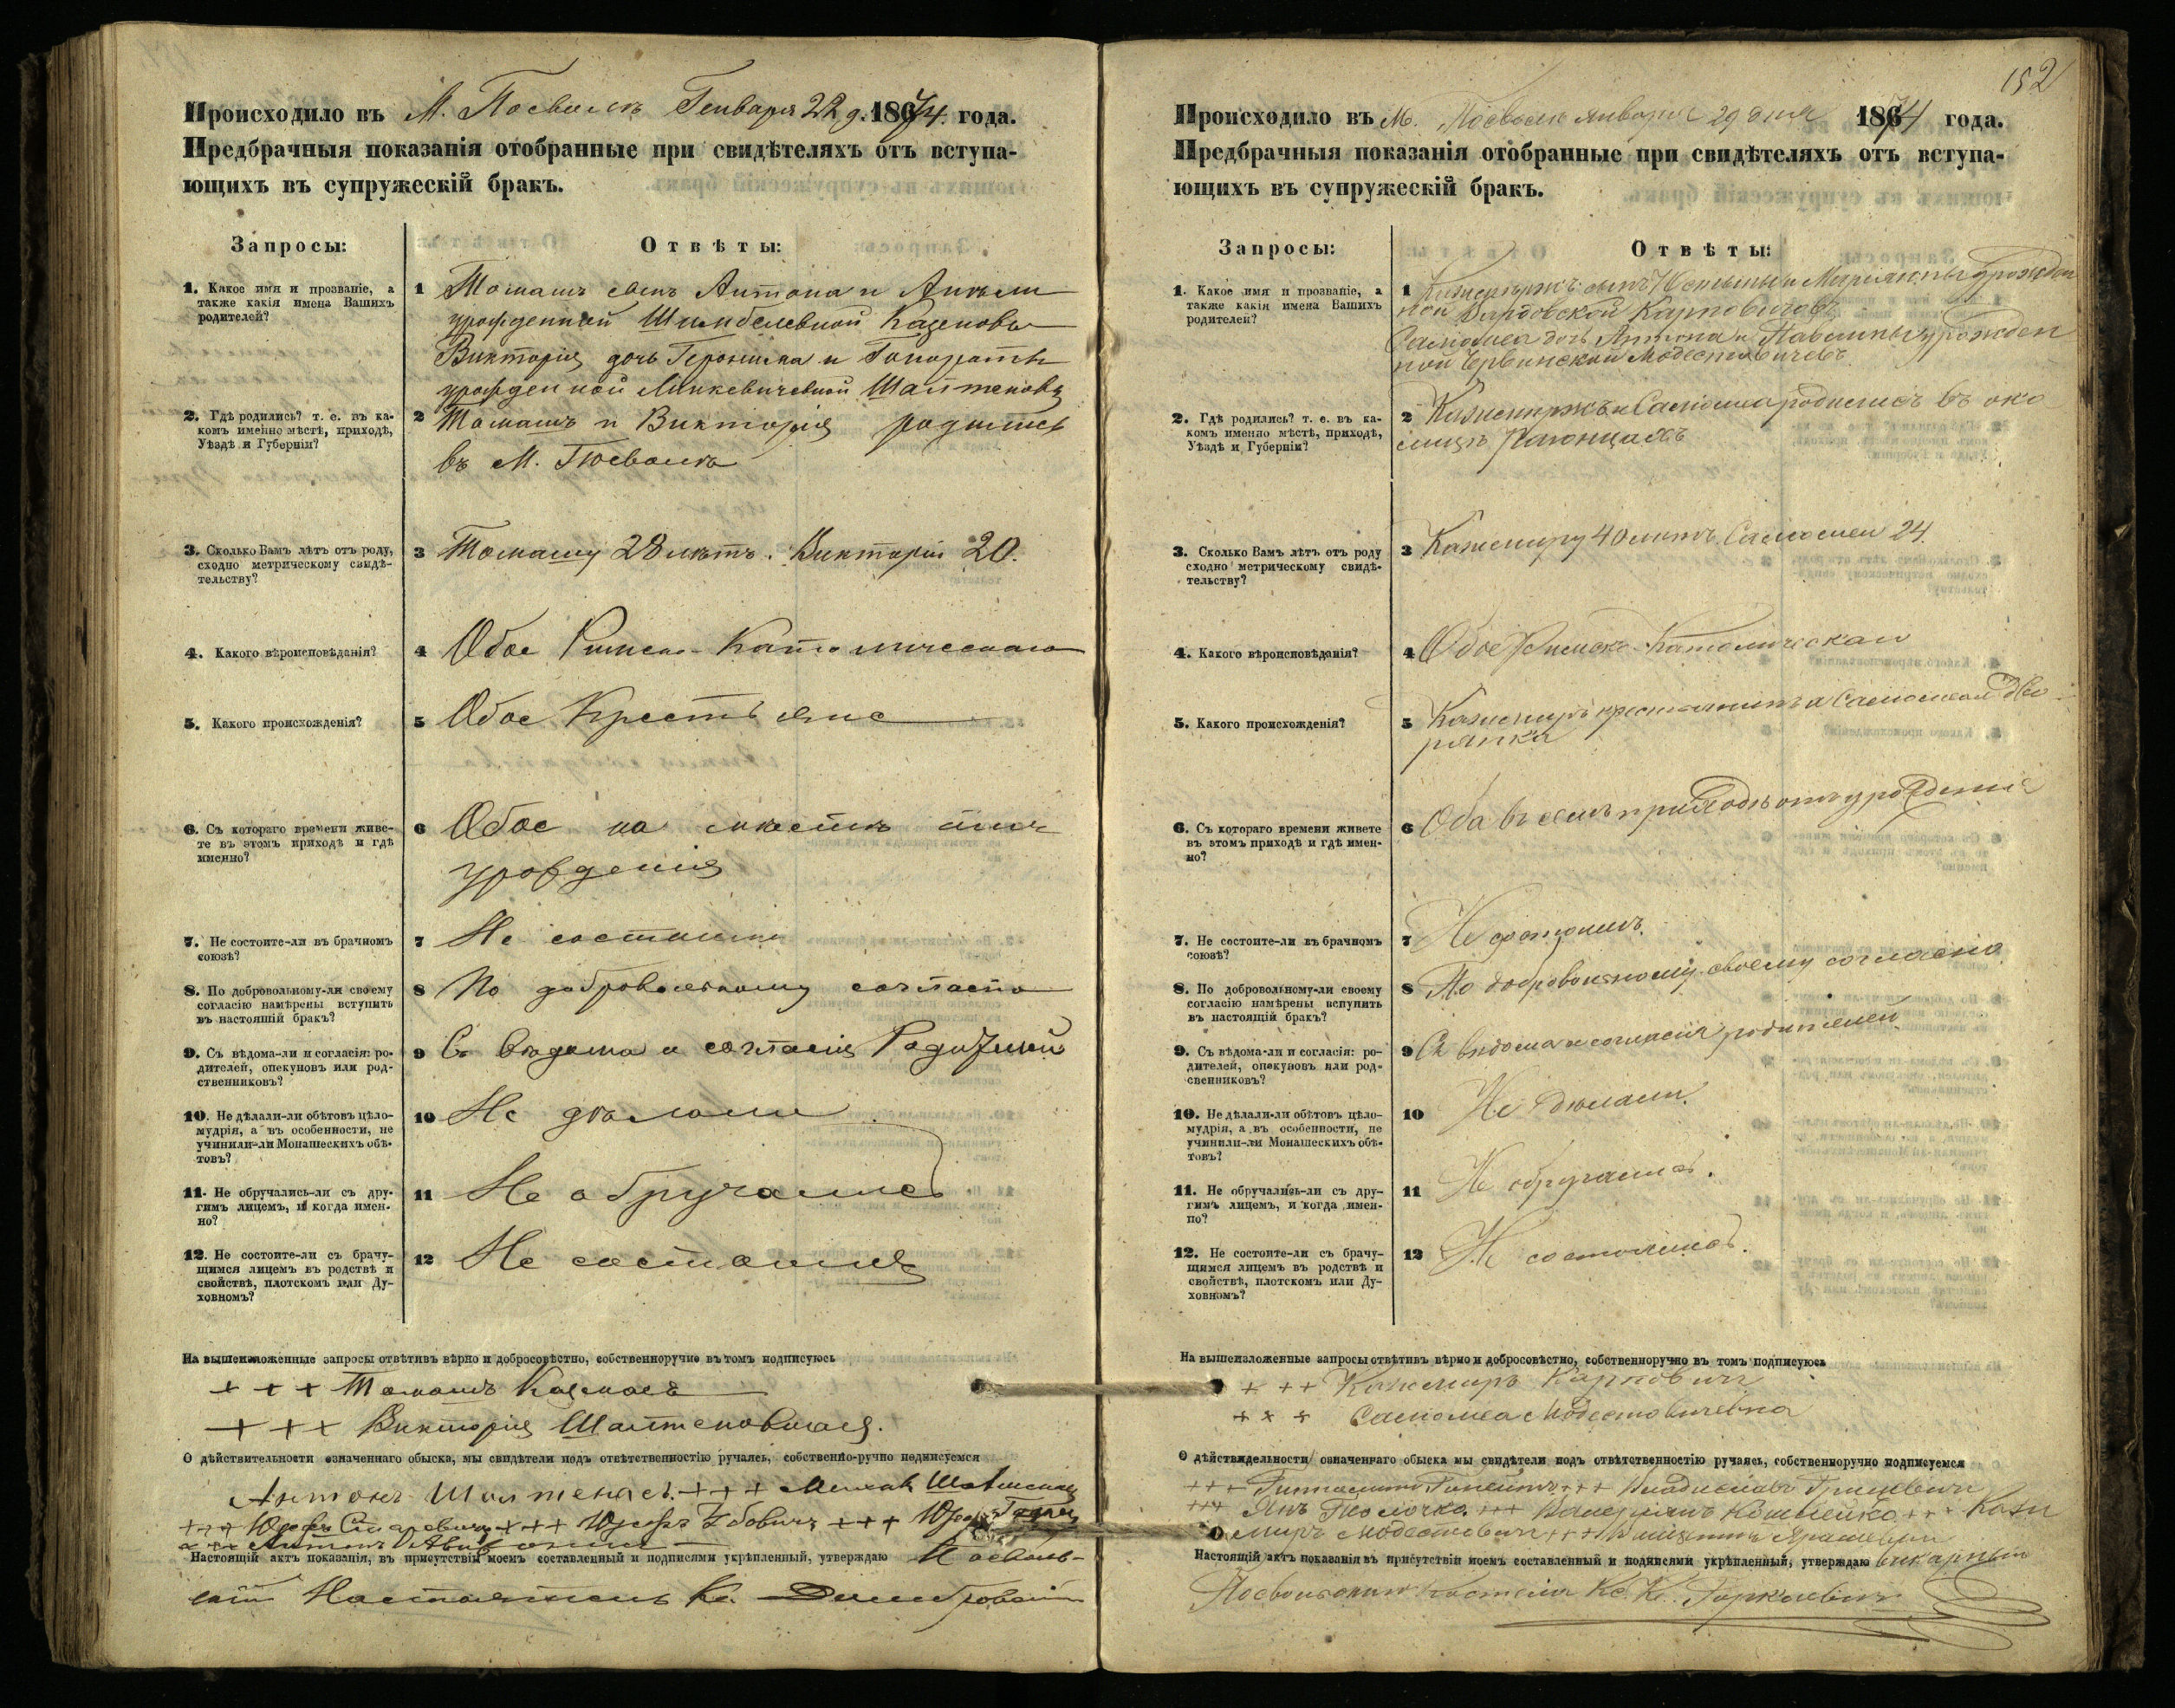 Происходило въ М. Посволь Генваря 22 д. 1874 года.
Предбрачныя показанія отобранные при свидѣтеляхъ отъ вступа-
ющихъ въ супружескій бракъ.
Запросы:
Отвѣты:
1. Какое имя и прозваніе, а
также какія имена Вашихъ
родителей?
1 Томашъ сынъ Антона и Анели
урожденной Казеновы
Викторія дочь Геронима и Гонораты
урожденной Минкевичевной Шалтеновъ
2. Гдѣ родились? т. е. въ ка-
комъ именно мѣстѣ, приходѣ,
Уѣздѣ и Губерніи?
2 Томашъ и Викторія родились
въ М. Посволь
3. Сколько Вамъ лѣтъ отъ роду,
сходно метрическому свидѣ-
тельству?
3 Томашу 28 лѣтъ. Викторіи 20.
4. Какого вѣроисповѣданія?
4 Обое Римско-Католическаго
5. Какого происхожденія?
5 Обое Крестьяне
6. Съ котораго времени живе-
те въ этомъ приходѣ и гдѣ
именно?
6 Обое на мѣстѣ
урожденія
7. Не состоите-ли въ брачномъ
союзѣ?
7 Не состоимъ
8. По добровольному-ли своему
согласію намѣрены вступить
въ настоящій бракъ?
8 По добровольному согласію
9. Съ вѣдома-ли и согласія: ро-
дителей, опекуновъ или род-
ственниковъ?
9 Съ вѣдома и согласія Родителей
10. Не дѣлали-ли обѣтовъ цѣло-
мудрія, а въ особенности, не
учинили-ли Монашескихъ обѣ-
товъ?
10 Не дѣлали
11. Не обручались-ли съ дру-
гимъ лицемъ, и когда имен-
но?
11 Не обручались
12. Не состоите-ли съ брачу-
щимся лицемъ въ родствѣ и
свойствѣ, плотскомъ или Ду-
ховномъ?
12 Не состоимъ
На вышеизложенные запросы отвѣтивъ вѣрно и добросовѣстно, собственноручно въ томъ подписуюсь
+ + + Томашъ
+ + + Викторія Шалтеновная.
О дѣйствительности означеннаго обыска, мы свидѣтели подъ отвѣтственностію ручаясь, собственно-ручно подписуемся
Антонъ Шалтенасъ +++
+++ Юзефъ +++ Юзефъ +++ Юзефъ
+++ Антонъ
Настоящій актъ показанія, въ присутствіи моемъ составленный и подписями укрѣпленный, утверждаю Посволь-
скій Настоятель Кс.
152
Происходило въ М. Посволь января 29 дня 1874 года.
Предбрачныя показанія отобранные при свидѣтеляхъ отъ вступа-
ющихъ въ супружескій бракъ.
Запросы:
Отвѣты:
1. Какое имя и прозваніе, а
также какія имена Вашихъ
родителей?
1 сынъ и Маріянны урожден
ной Карповичовъ
Саломея дочь Антона и Павлины урожден
ной Модестовичевъ
2. Гдѣ родились? т. е. въ ка-
комъ именно мѣстѣ, приходѣ,
Уѣздѣ и Губерніи?
2 и Саломея родились въ око
лицѣ
3. Сколько Вамъ лѣтъ отъ роду
сходно метрическому свидѣ-
тельству?
3 Казимиру 40 лѣтъ, Саломеи 24.
4. Какого вѣроисповѣданія?
4 Обое Римско-Католическаго
5. Какого происхожденія?
5 Казимиръ крестьянинъ а Саломея дво
рянка
6. Съ котораго времени живете
въ этомъ приходѣ и гдѣ имен-
но?
6 Оба въ семъ приходѣ отъ урожденія
7. Не состоите-ли въ брачномъ
союзѣ?
7 Не состоимъ.
8. По добровольному-ли своему
согласію намѣрены вступить
въ настоящій бракъ?
8 По добровольному своему согласію
9. Съ вѣдома-ли и согласія: ро-
дителей, опекуновъ или род-
свенниковъ?
9 Съ вѣдома и согласія родителей.
10. Не дѣлали-ли обѣтовъ цѣло-
мудрія, а въ особенности, не
учинили-ли Монашескихъ обѣ-
товъ?
10 Не дѣлали.
11. Не обручались-ли съ дру-
гимъ лицемъ, и когда имен-
но?
11 Не обручались.
12. Не состоите-ли съ брачу-
щимся лицемъ въ родствѣ и
свойствѣ, плотскомъ или Ду-
ховномъ?
12 Не состоимъ.
На вышеизложенные запросы отвѣтивъ вѣрно и добросовѣстно, собственноручно въ томъ подписуюсь
+ + + Казимиръ Карповичъ
+ + + Саломеа Модестовичевна
О дѣйствидельности означеннаго обыска мы свидѣтели подъ отвѣтственностію ручаясь, собственноручно подписуемся
+++ +++ Владиславъ
+++ Янъ +++ Валеріянъ +++ Кази
миръ Модестовичъ +++
Настоящій актъ показанія въ присутствіи моемъ составленный и подписями укрѣпленный, утверждаю викарный
Посвольскаго Костела Кс. К.